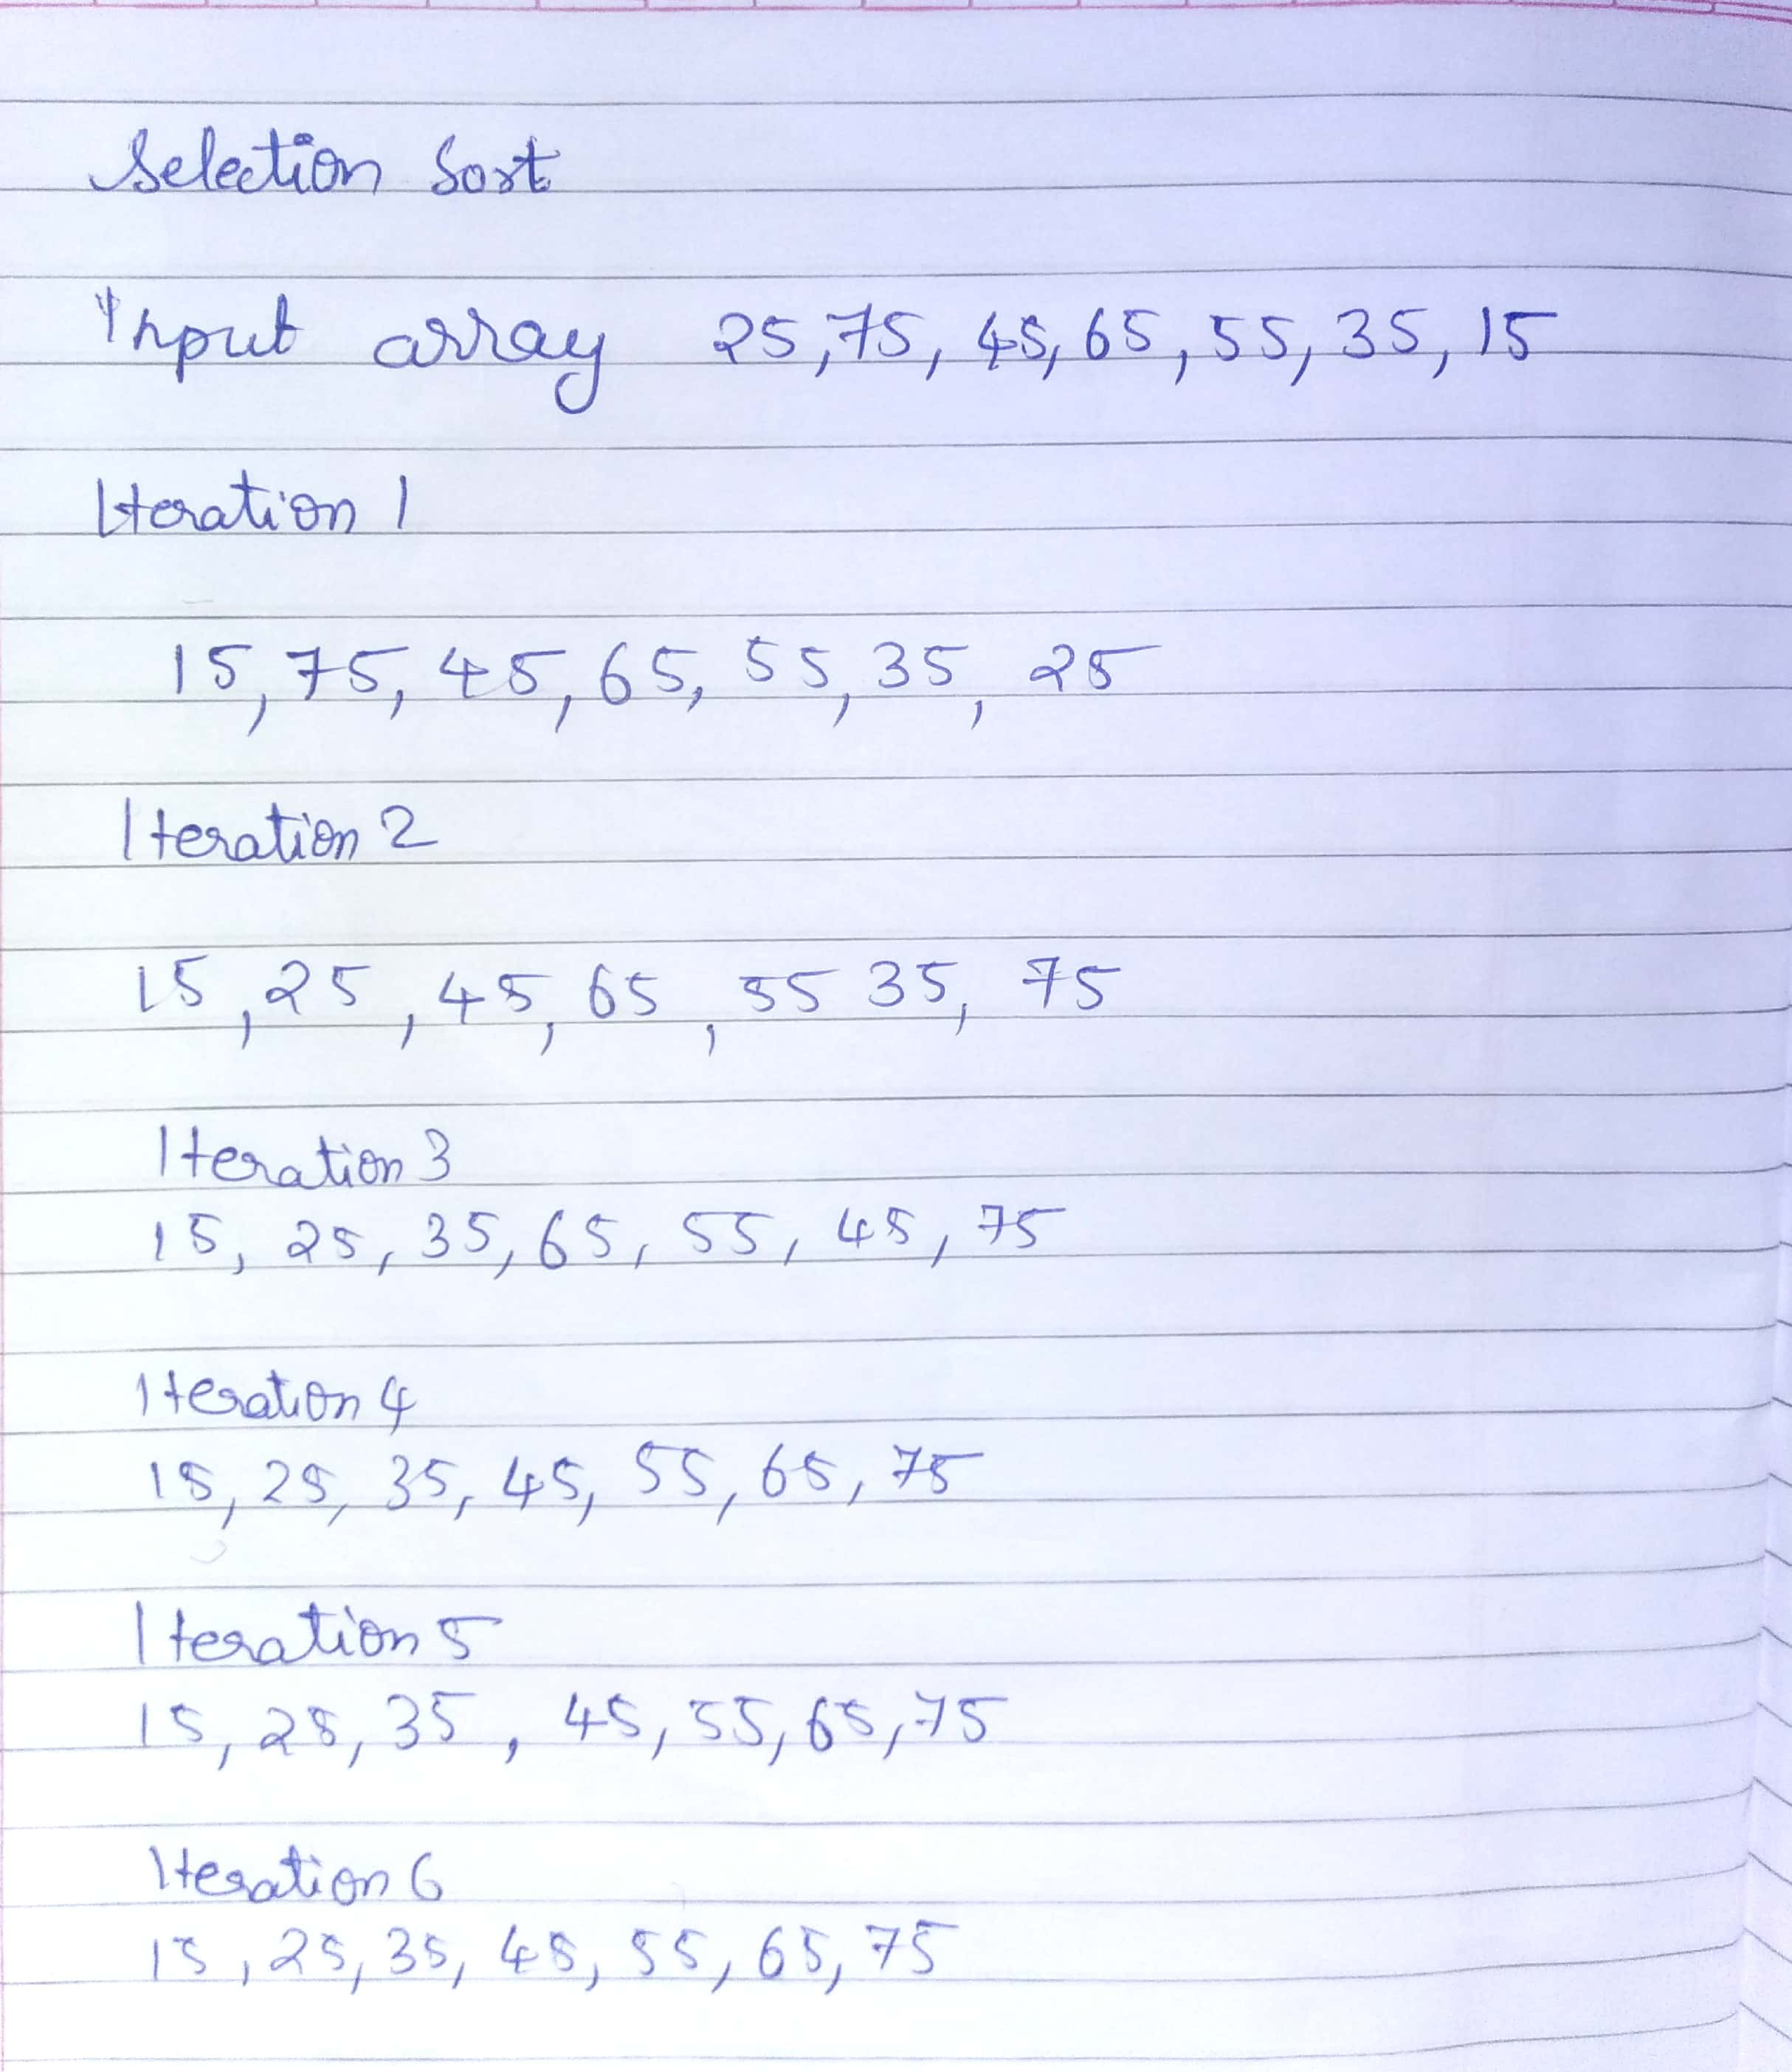 Selection Sort
Input array 25,75, 45, 65, 55, 35, 15
Iteration 1
15, 75, 45, 65, 55, 35, 25
Iteration 2
15, 25, 45, 65, 55 35, 75
Iteration 3
15, 25, 35, 65, 55, 45, 75
Iteration 4
15, 25, 35, 45, 55, 65, 75
Iteration 5
15, 25, 35, 45, 55, 65, 75
Iteration 6
15, 25, 35, 45, 55, 65, 75